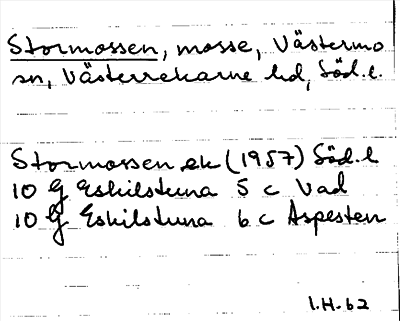 Stormossen, mosse, Västermo
sn, Västerrekarne hd, Söd.l.
Stormossen ek (1957) Söd.l
10 G Eskilstuna 5 c Vad
10 G Eskilstuna 6 c Aspesten
I.H. 62